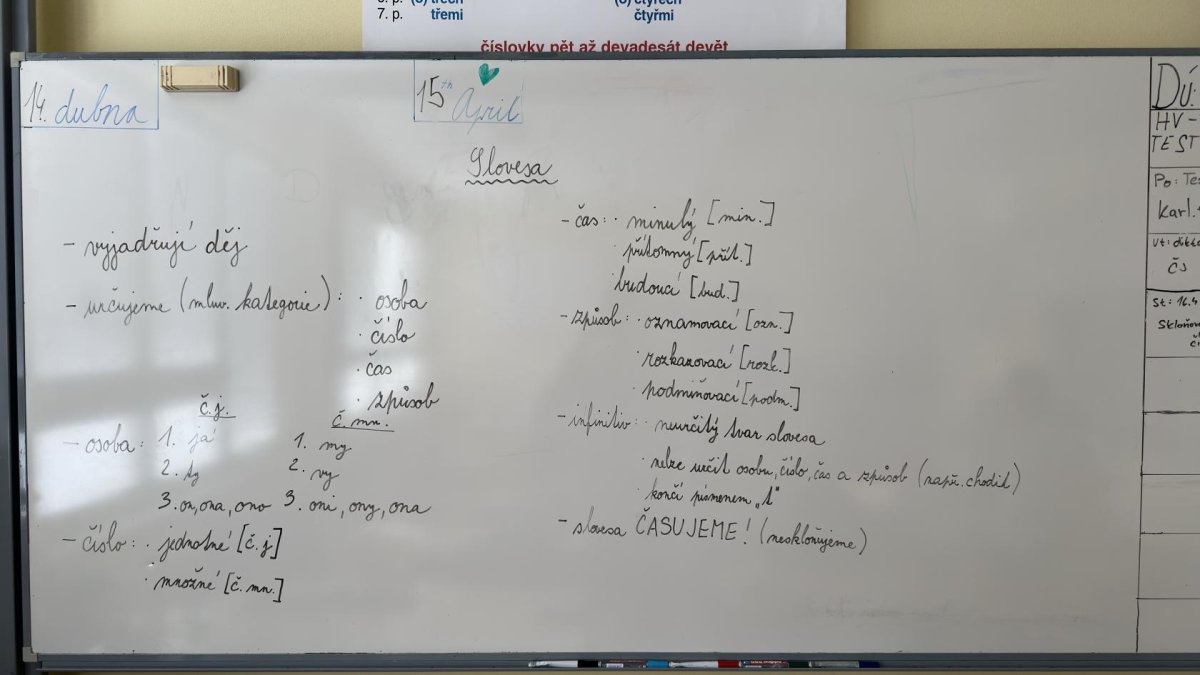 7. p. třemi čtyřmi
číslovky pět až devadesát devět
14. dubna
15th April
Slovesa
- vyjadřují děj
- určujeme (mluv. kategorie): · osoba
· číslo
· čas
· způsob
č.j. č.mn.
- osoba: 1. já 1. my
2. ty 2. vy
3. on, ona, ono 3. oni, ony, ona
- číslo: · jednotné [č.j.]
· množné [č.mn.]
- čas: · minulý [min.]
· přítomný [přít.]
· budoucí [bud.]
- způsob: · oznamovací [ozn.]
· rozkazovací [rozk.]
· podmiňovací [podm.]
- infinitiv: · neurčitý tvar slovesa
· nelze určit osobu, číslo, čas a způsob (např. chodit)
· končí písmenem „t"
- slovesa ČASUJEME! (neskloňujeme)
DÚ
HV -
TEST
Po: Te
Karl.
Út:
ČS
St: 16.4